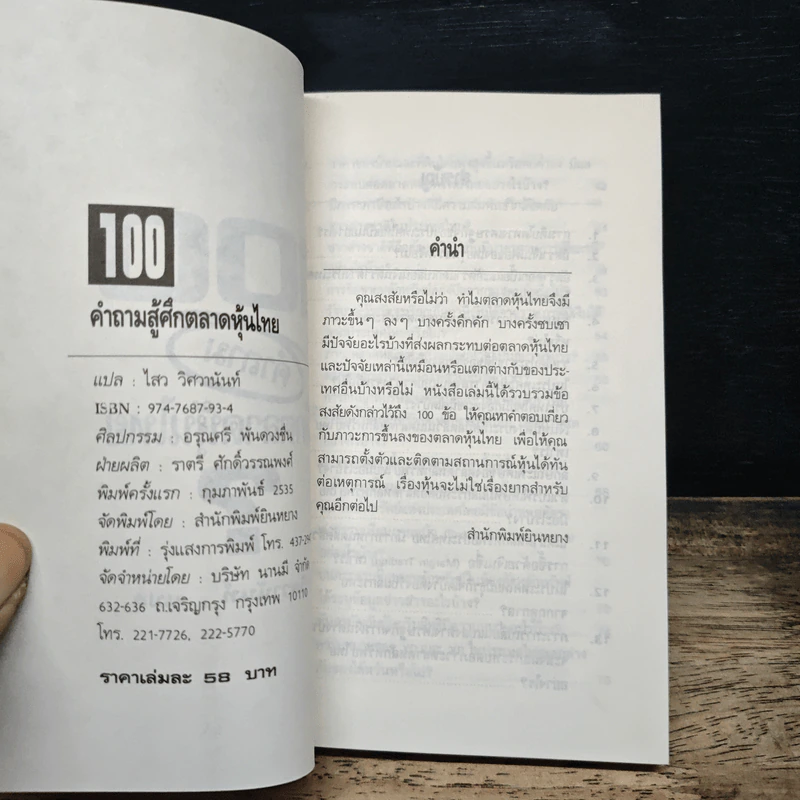 100
คำถามสู้ศึกตลาดหุ้นไทย
แปล : ไสว วิศวานันท์
ISBN : 974-7687-93-4
ศิลปกรรม : อรุณศรี พันดวงชื่น
ฝ่ายผลิต : ราตรี ศักดิ์วรรณพงศ์
พิมพ์ครั้งแรก : กุมภาพันธ์ 2535
จัดพิมพ์โดย : สำนักพิมพ์ยินหยาง
พิมพ์ที่ : รุ่งแสงการพิมพ์ โทร.
จัดจำหน่ายโดย : บริษัท นานมี จำกัด
632-636 ถ.เจริญกรุง กรุงเทพ 10110
โทร. 221-7726, 222-5770
ราคาเล่มละ 58 บาท
คำนำ
คุณสงสัยหรือไม่ว่า ทำไมตลาดหุ้นไทยจึงมี
ภาวะขึ้นๆ ลงๆ บางครั้งคึกคัก บางครั้งซบเซา
มีปัจจัยอะไรบ้างที่ส่งผลกระทบต่อตลาดหุ้นไทย
และปัจจัยเหล่านี้เหมือนหรือแตกต่างกับของประ-
เทศอื่นบ้างหรือไม่ หนังสือเล่มนี้ได้รวบรวมข้อ
สงสัยดังกล่าวไว้ถึง 100 ข้อ ให้คุณหาคำตอบเกี่ยว
กับภาวะการขึ้นลงของตลาดหุ้นไทย เพื่อให้คุณ
สามารถตั้งตัวและติดตามสถานการณ์หุ้นได้ทัน
ต่อเหตุการณ์ เรื่องหุ้นจะไม่ใช่เรื่องยากสำหรับ
คุณอีกต่อไป
สำนักพิมพ์ยินหยาง